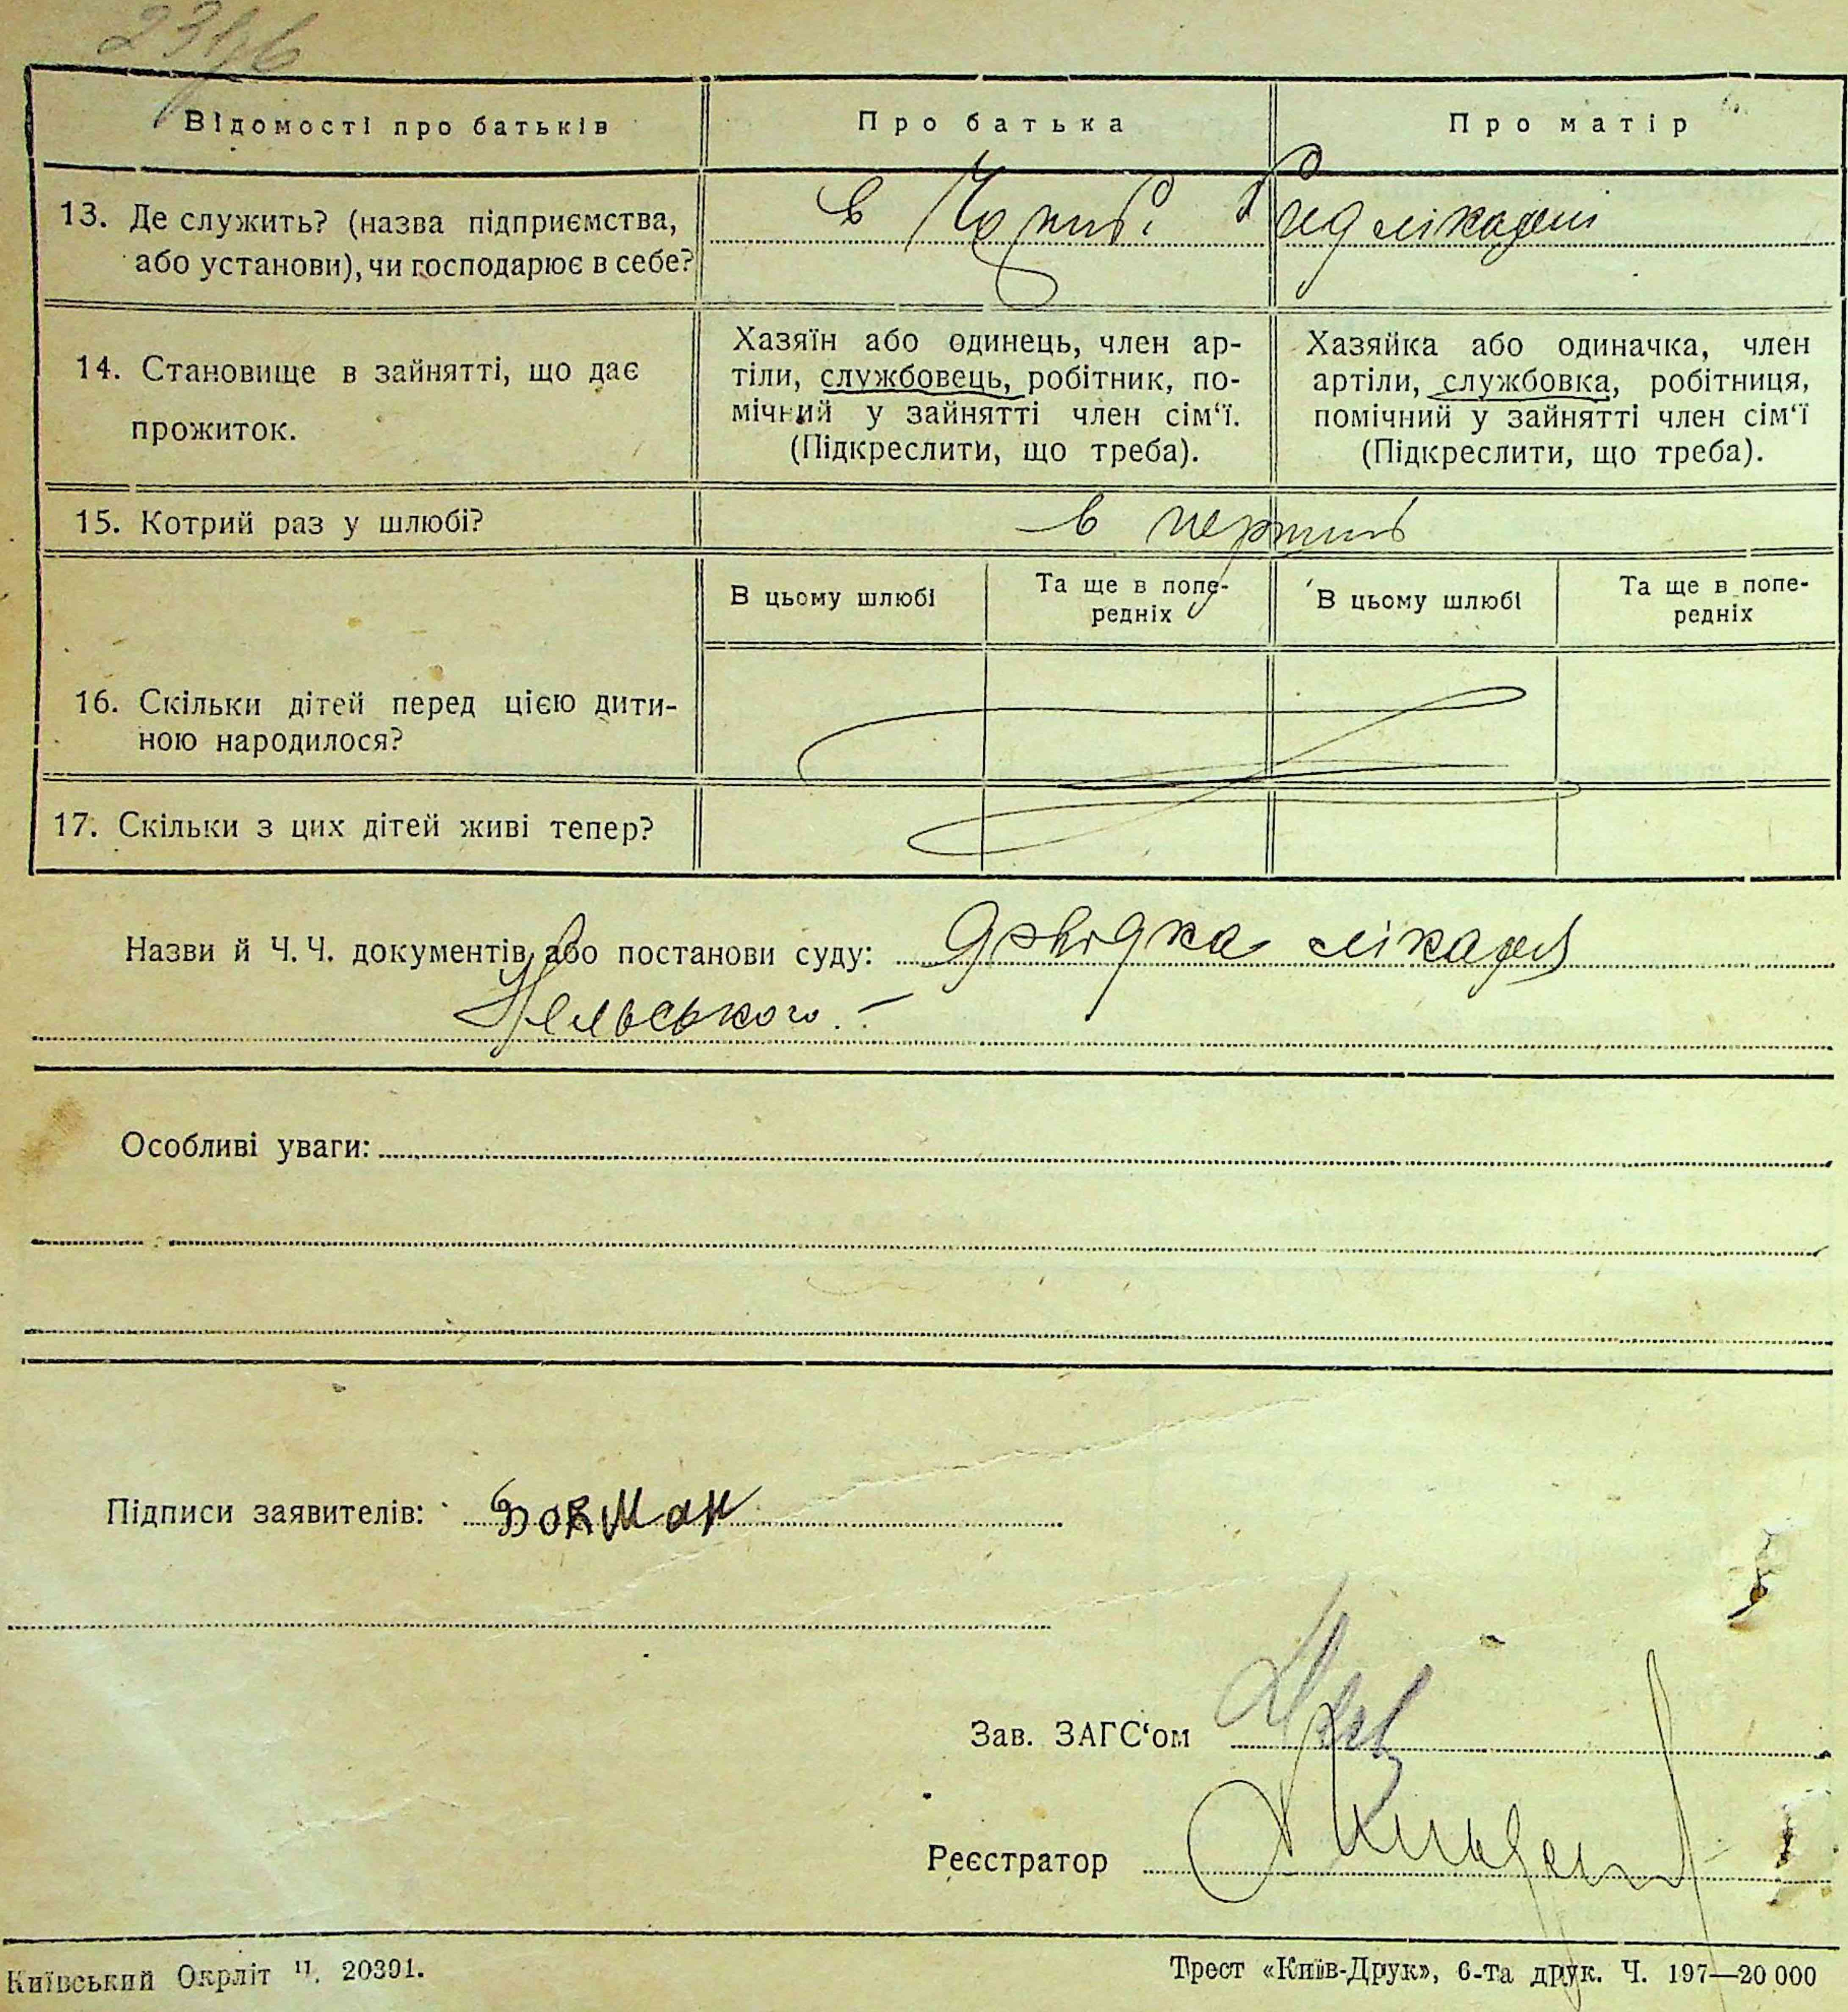 Відомості про батьків
Про батька
Про матір
13. Де служить? (назва підприємства,
або установи), чи господарює в себе?
в лікарні
14. Становище в зайнятті, що дає
прожиток.
Хазяїн або одинець, член ар-
тіли, службовець, робітник, по-
мічний у зайнятті член сім‘ї.
(Підкреслити, що треба).
Хазяйка або одиначка, член
артіли, службовка, робітниця,
помічний у зайнятті член сім‘ї
(Підкреслити, що треба).
15. Котрий раз у шлюбі?
в перший
В цьому шлюбі
Та ще в попе-
редніх
В цьому шлюбі
Та ще в попе-
редніх
16. Скільки дітей перед цією дити-
ною народилося?
17. Скільки з цих дітей живі тепер?
Назви й Ч. Ч. документів або постанови суду: довідка лікаря
Особливі уваги:
Підписи заявителів: Бокман
Зав. ЗАГС‘ом
Реєстратор
Київський Окрліт Ч. 20391.
Трест «Київ-Друк», 6-та друк. Ч. 197—20 000